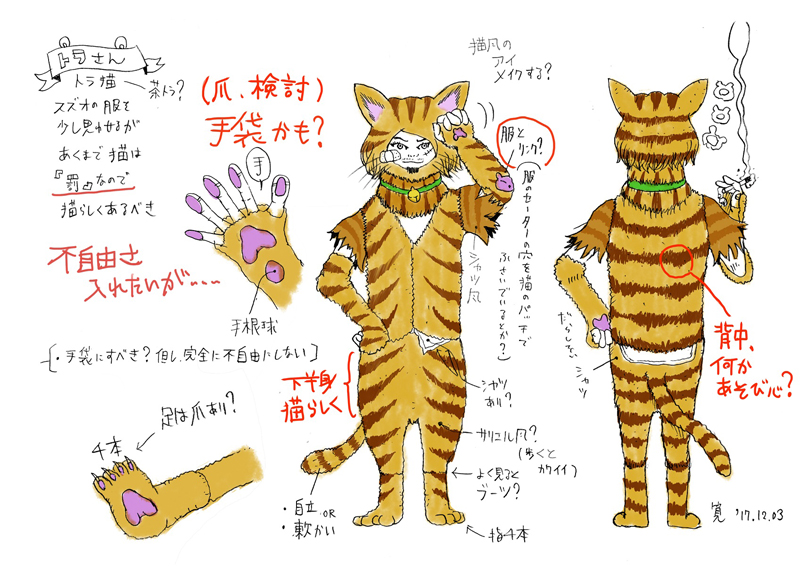 トラさん
トラ猫
茶トラ?
スズオの服を
少し見せるが
あくまで猫は
『罰』なので
猫らしくあるべき
不自由さ
入れたいが・・・・
(爪、検討)
手袋かも?
手
手根球
[・手袋にすべき?但し、完全に不自由にしない]
足は爪あり?
4本
猫風の
アイ
メイクする?
服と
リンク?
(服のセーターの穴を猫のパッチで
ふさいでいるとか?)
シャツ風
下半身
猫らしく
シャツ
あり?
サリエル風?
(歩くと
カワイイ)
よく見ると
ブーツ?
・自立 OR
・軟かい
指4本
だらしない
シャツ
背中、
何か
あそび心?
寛 '17.12.03